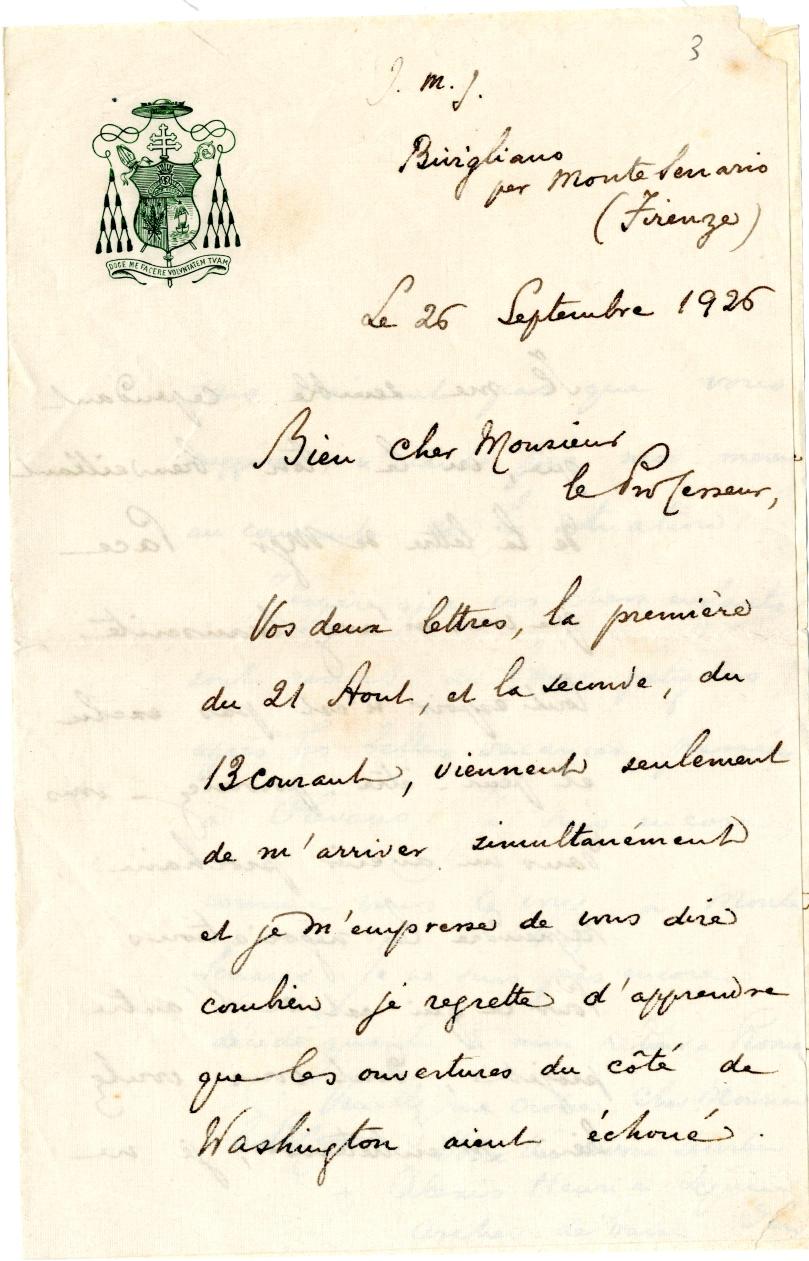 3
J. M. J.
Bivigliano
per Monte Senario
(Firenze)
DOCE ME FACERE VOLVNTATEM TVAM
Le 26 Septembre 1926
Bien cher Monsieur
le Professeur,
Vos deux lettres, la première
du 21 Aout, et la seconde, du
13 courant, viennent seulement
de m'arriver simultanément
et je m'empresse de vous dire
combien je regrette d'apprendre
que les ouvertures du côté de
Washington aient échoué.